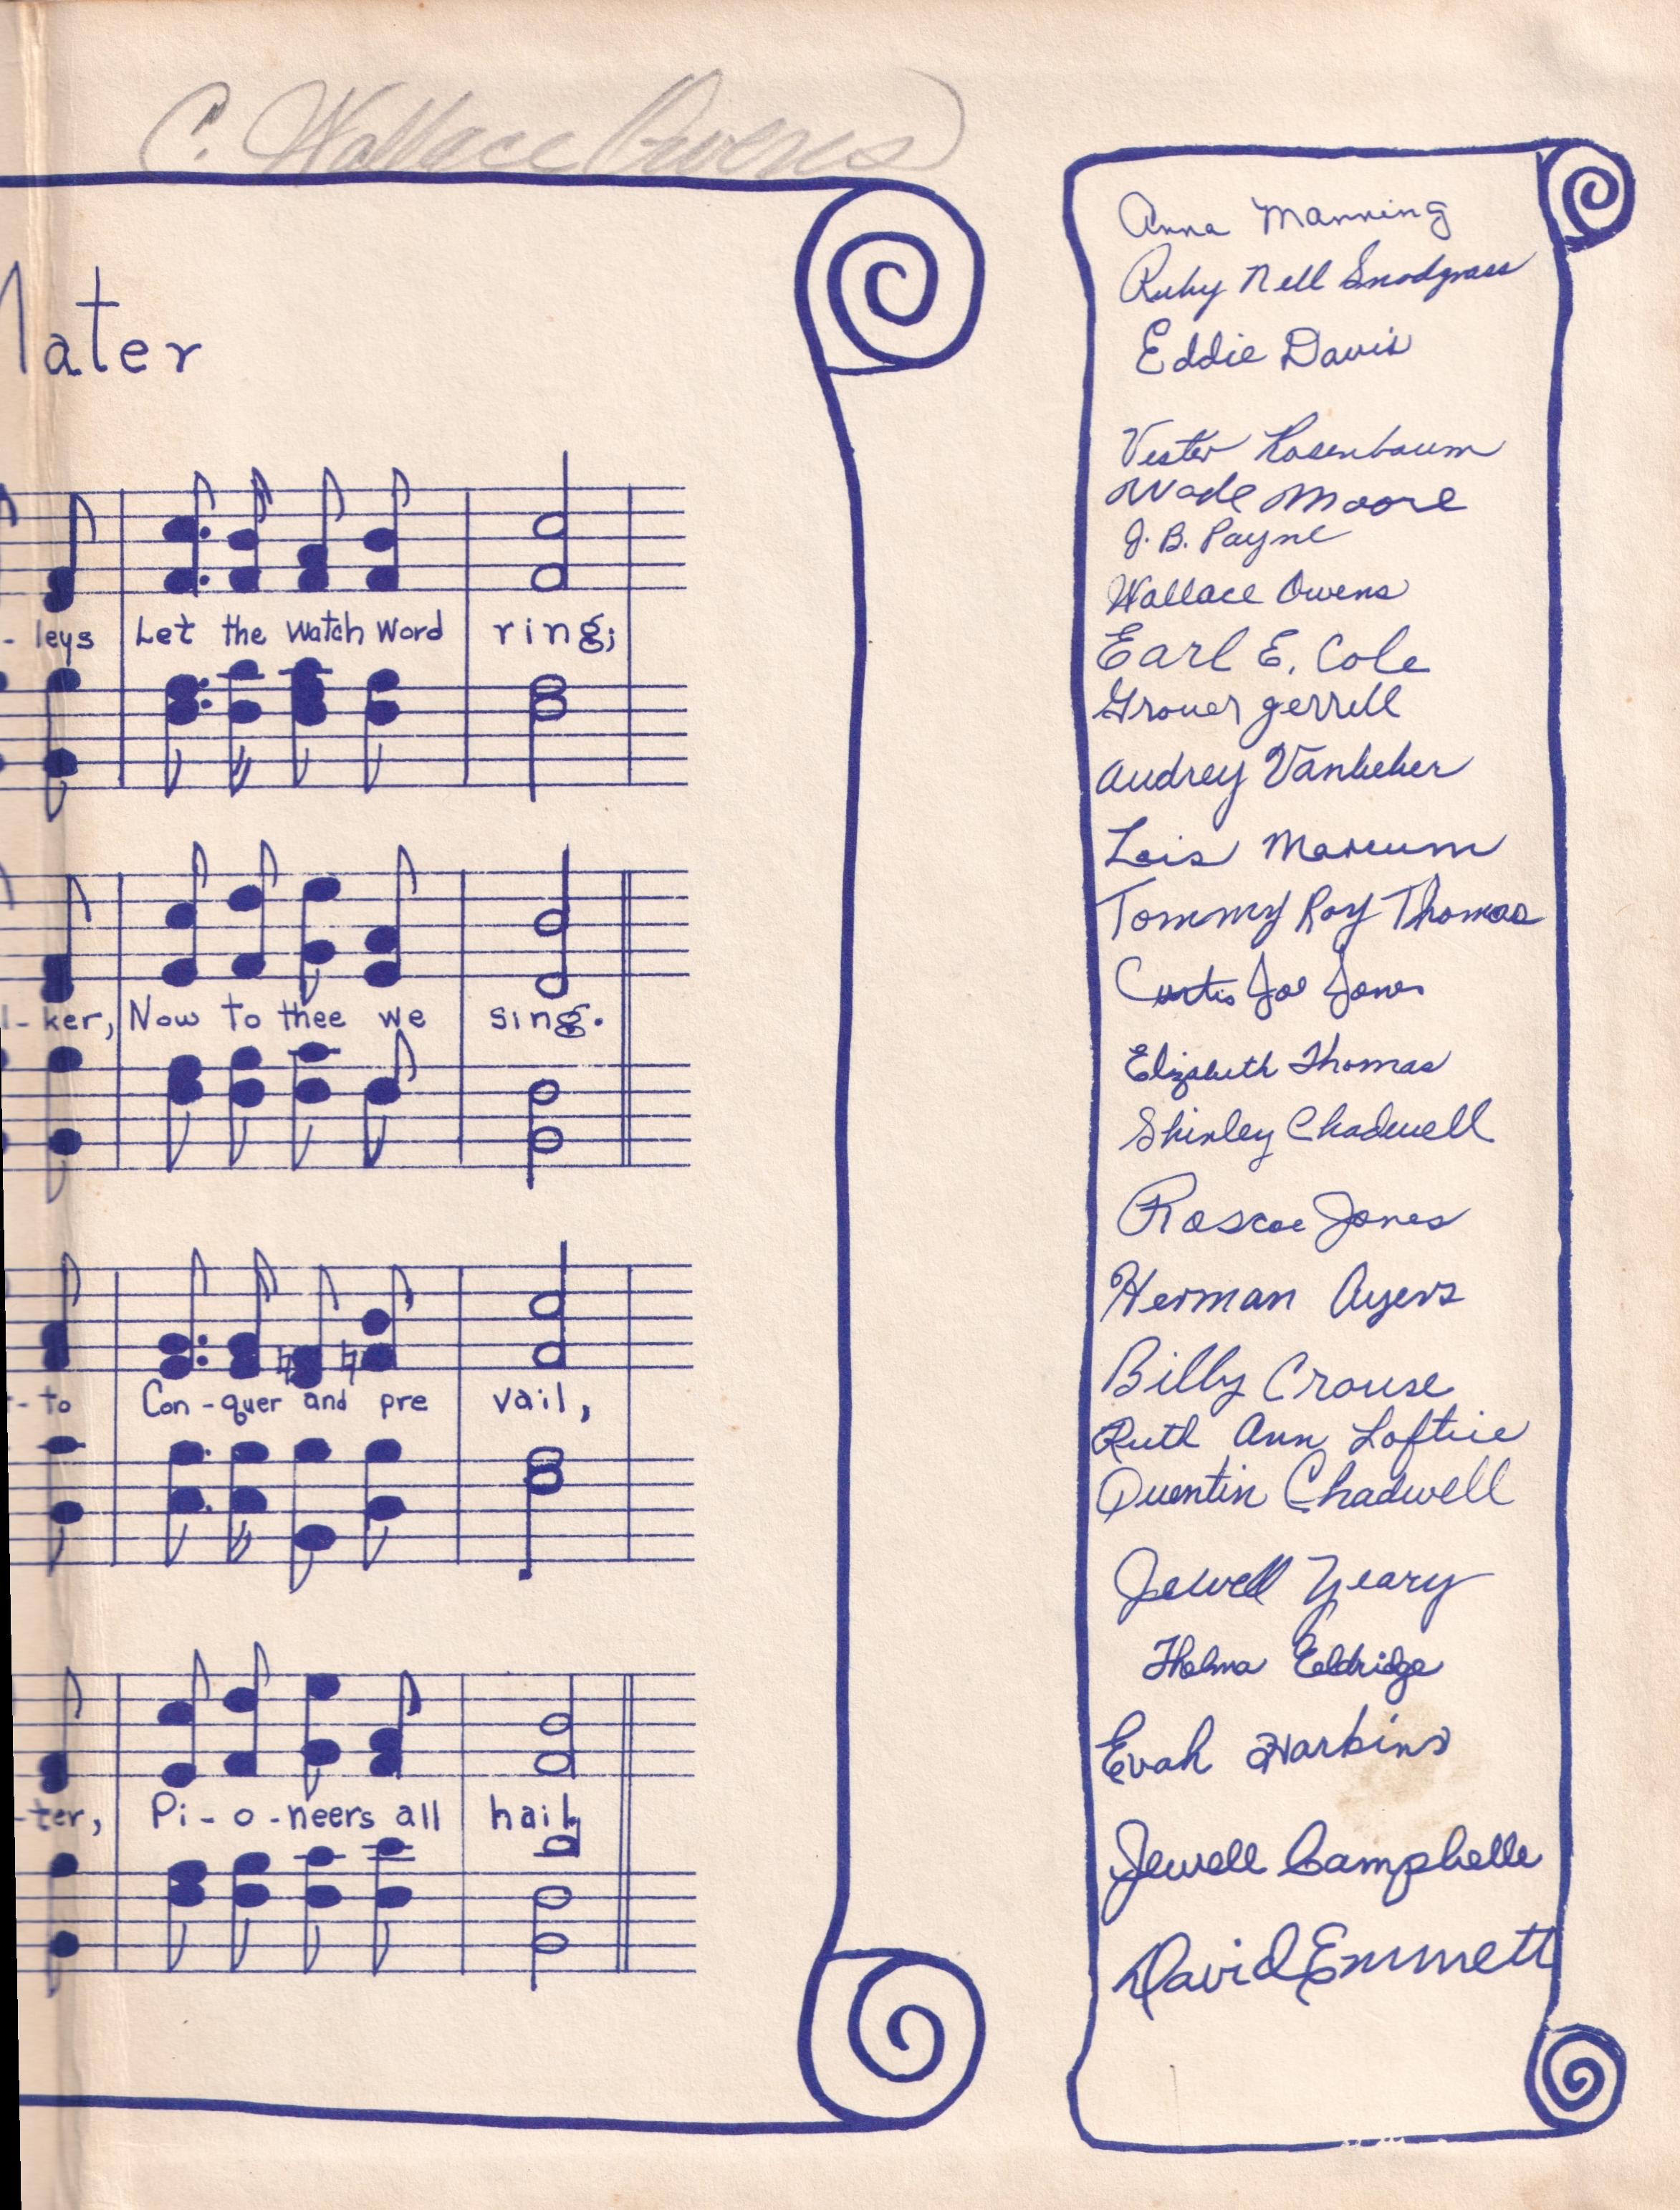 C. Wallace Owens
Mater
- leys Let the watch word ring;
l - ker, Now to thee we sing.
- to Con - quer and pre vail,
- ter, Pi - o - neers all hail,
Anna Manning
Ruby Nell Snodgrass
Eddie Davis
Vester Rosenbaum
Wade Moore
J. B. Payne
Wallace Owens
Earl E. Cole
Grover Jerrell
Audrey Vanbeber
Lois Marcum
Tommy Roy Thomas
Curtis Joe Jones
Elizabeth Thomas
Shirley Chadwell
Roscoe Jones
Herman Ayers
Billy Crouse
Ruth Ann Loftice
Quentin Chadwell
Jewell Yeary
Thelma Eldridge
Evah Harkins
Jewell Campbelle
David Emmett